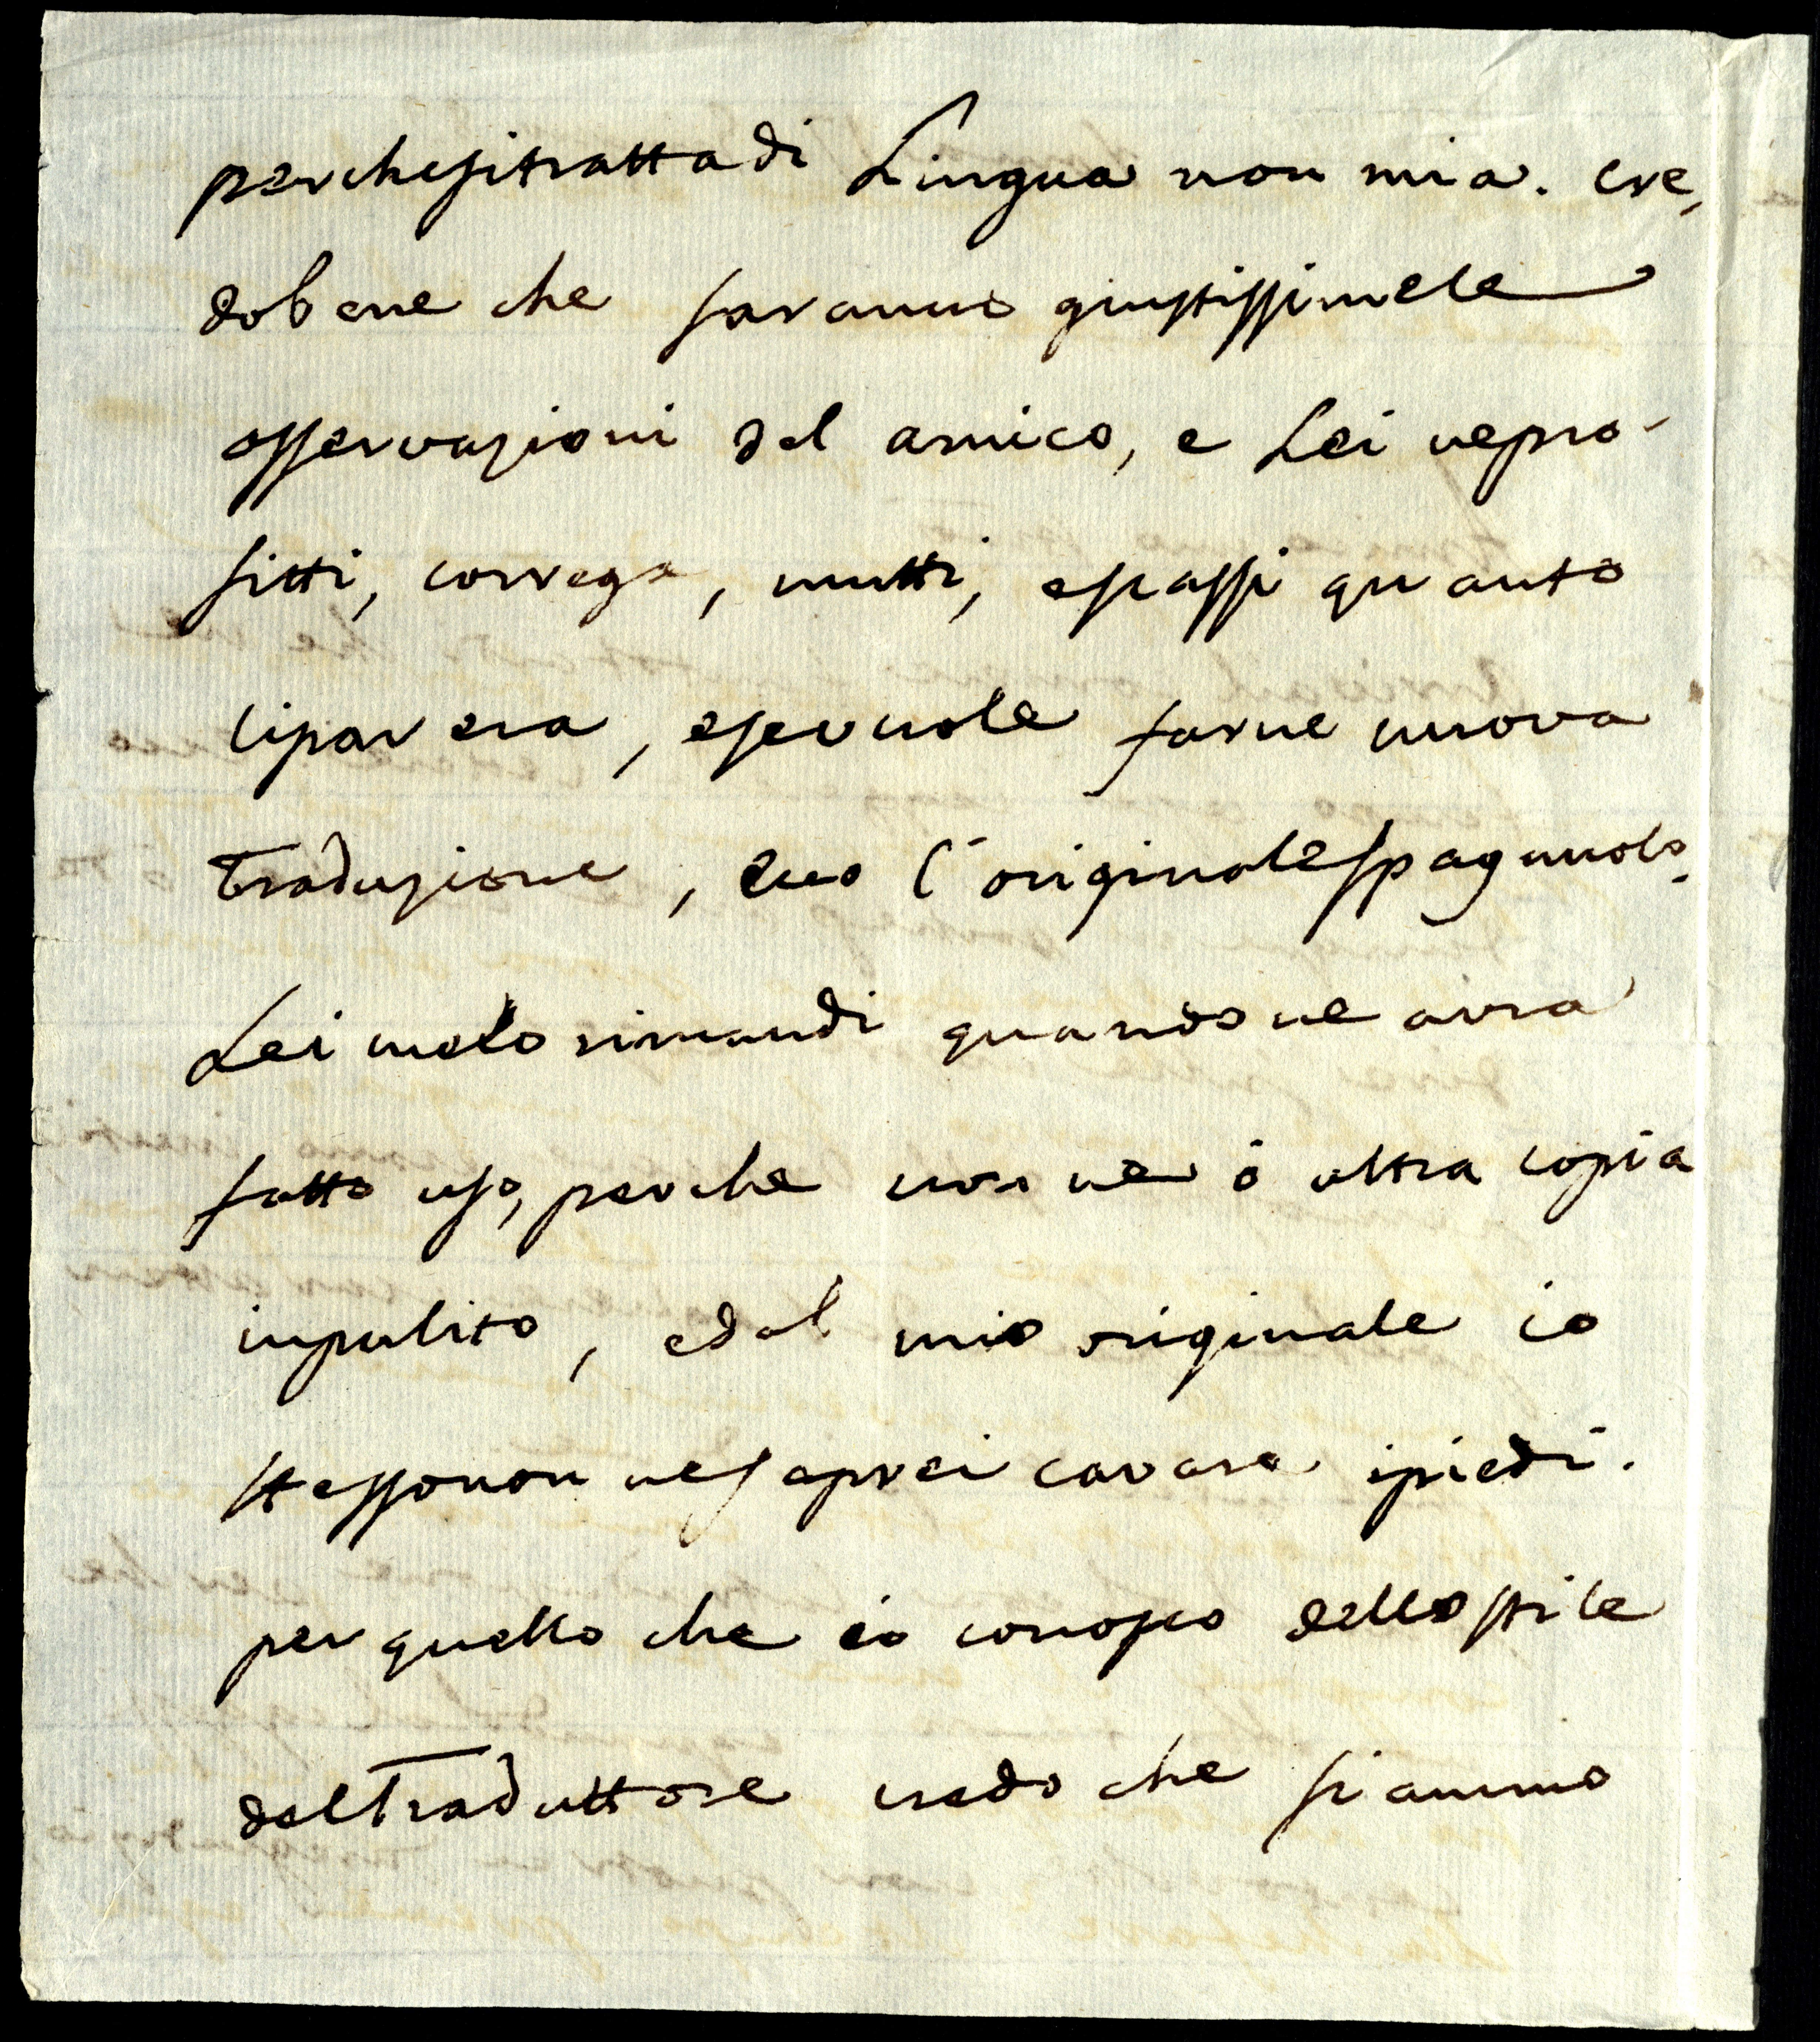 perchesitrattadi Lingua non mia. cre,
dobene che saranno giustissimele
osservazioni del amico, e Lei nepro-
fitti, correga, mutti, espassi quanto
lipar era, esevuole farne nuova
Traduzione, l'originalespagnuolo.
Lei melo rimandi quandone avra
fatto uso, perche non ne ó altra copia
inpulito, edal mio originale io
stessonon nesaprei cavare ipiedi.
per quello che io conosco dellostile
delTraduttore credo che sianno